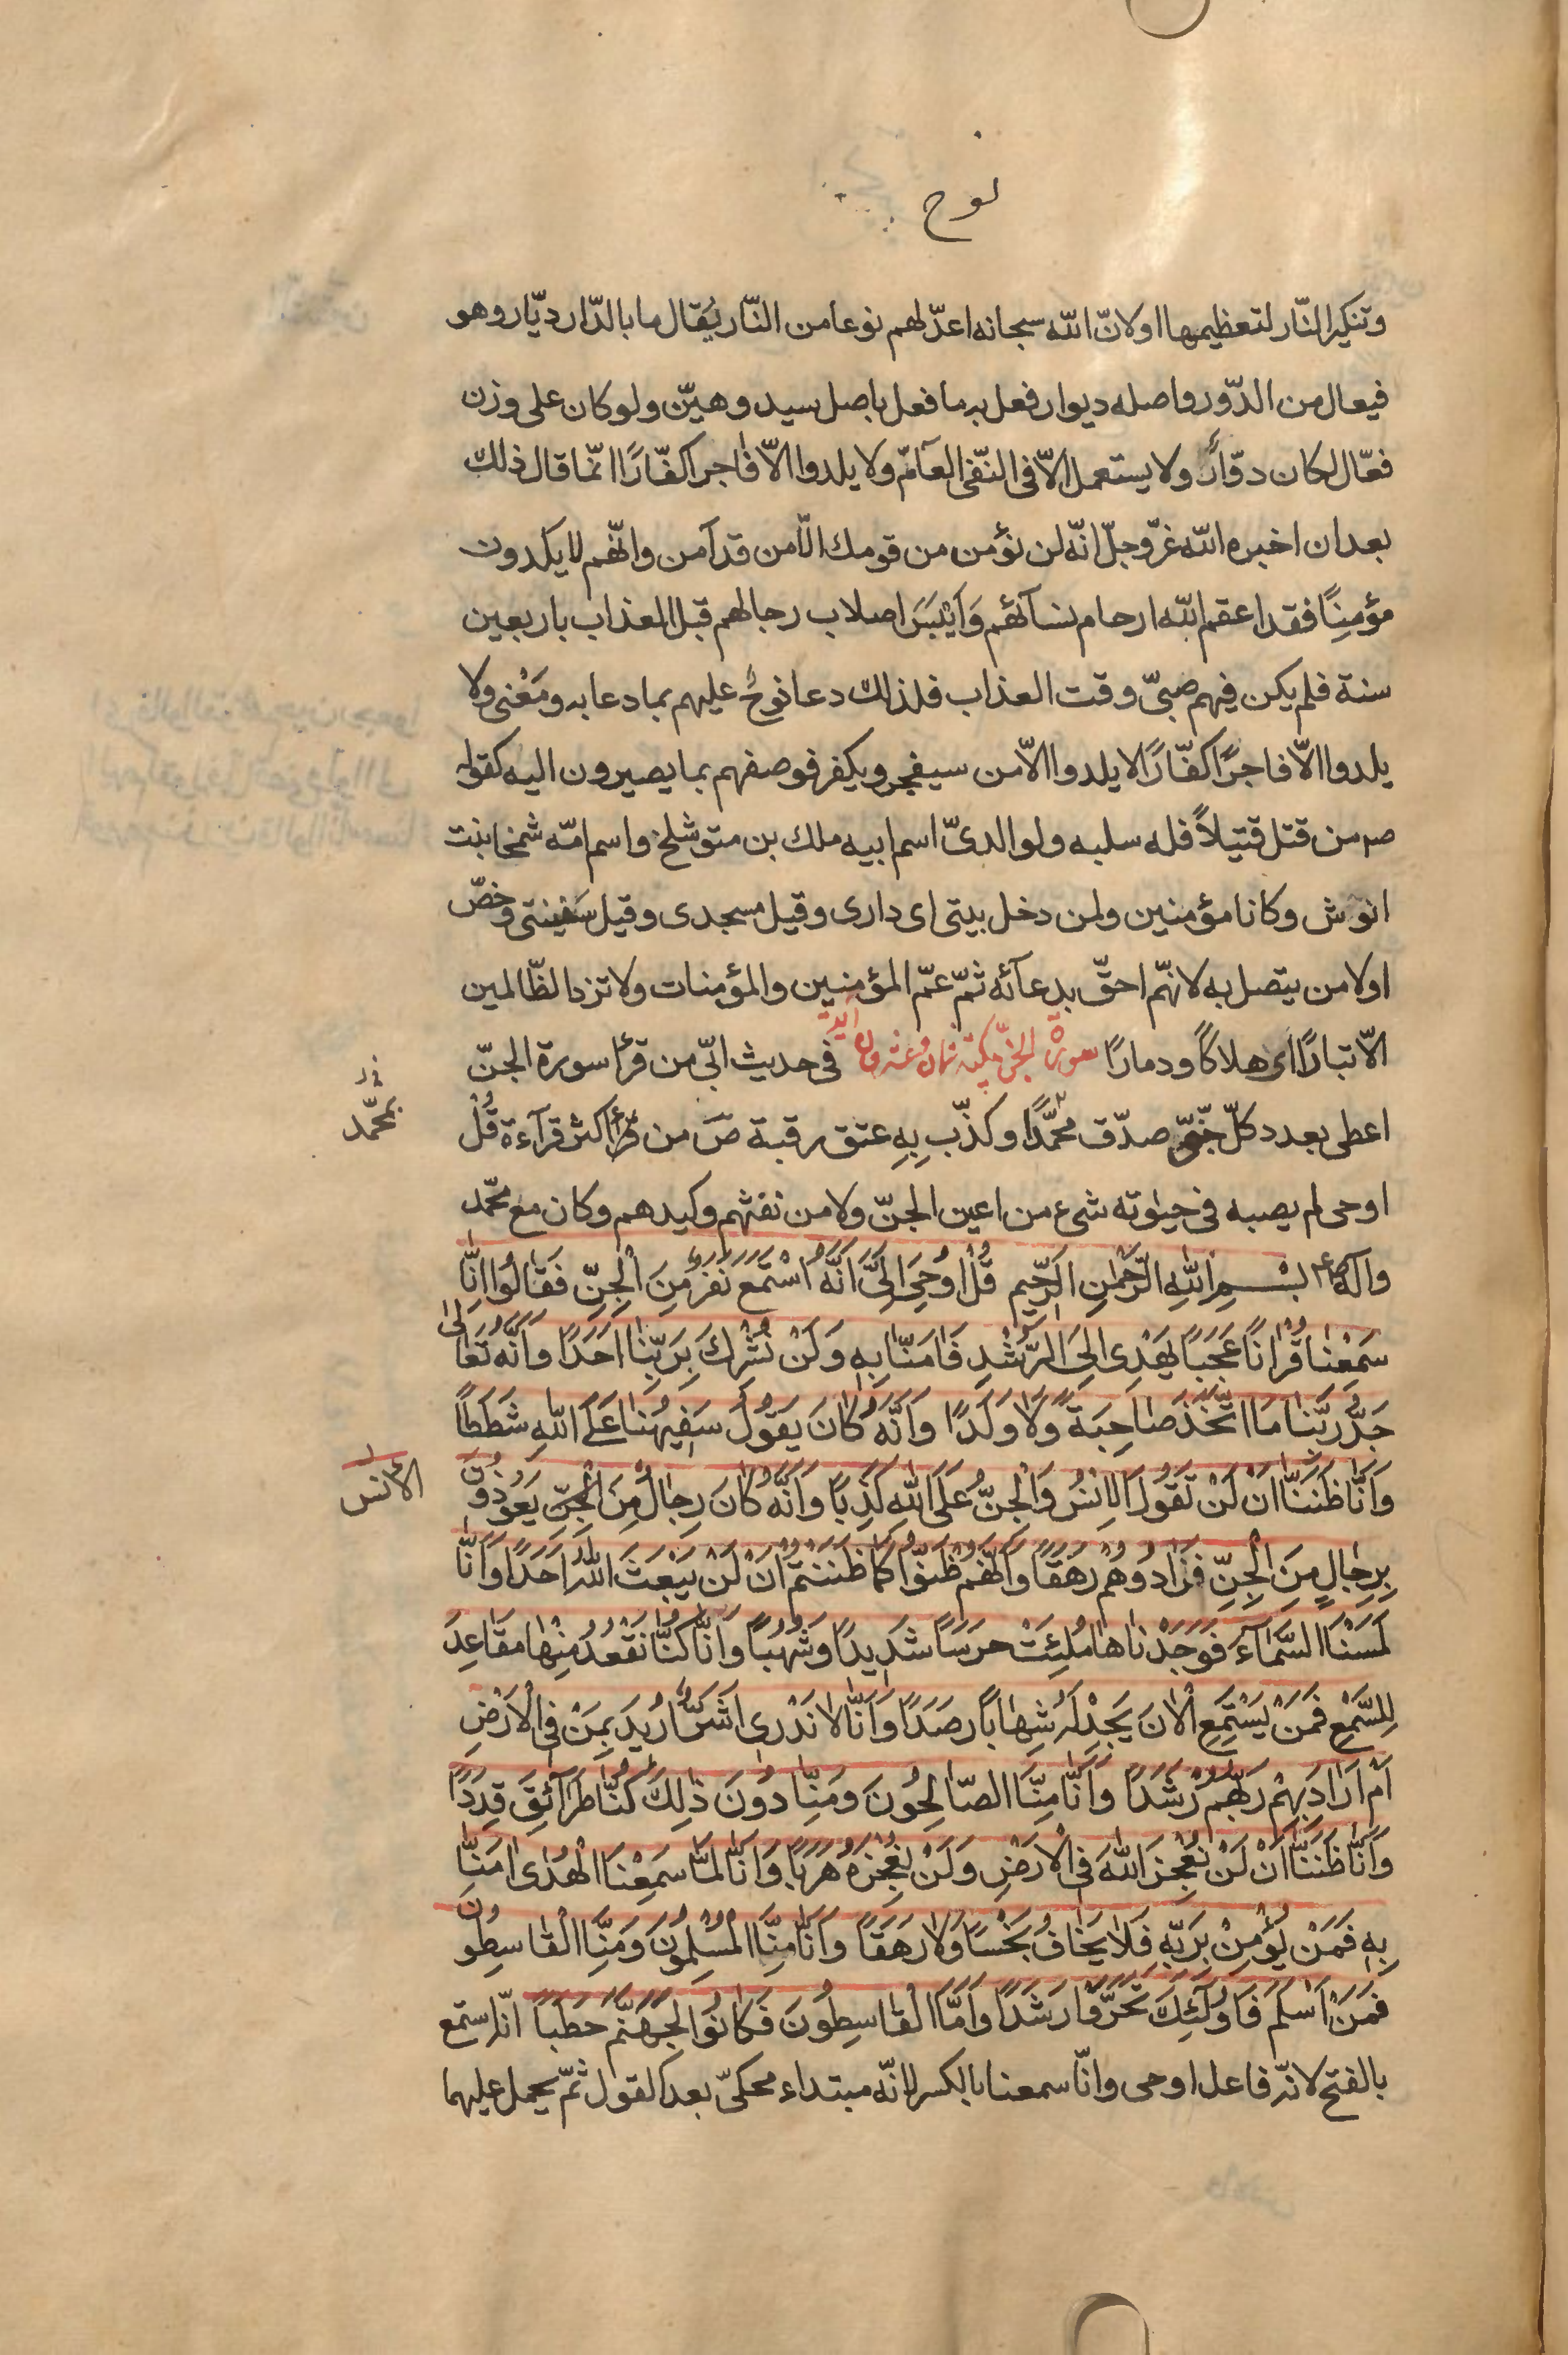 نوح
وتنكير النّار لتعظيمها اولانّ الله سبحانه اعدّ لهم نوعا من النّار يُقال ما بالدّار ديّار وهو
فيعال من الدّور واصله ديوار فعل به ما فعل باصل سيد وهيّن ولو كان على وزن
فعّال لكان دوّارٌ ولا يستعمل الاّ فى النّفى العآمّ ولا يلدوا الاّ فاجرا كفّارًا انّما قال ذلك
بعد ان اخبره الله عزّ وجلّ انّه لن نؤمن من قومك الاّ من قد آمن وانّهم لا يلدون
مؤمنًا فقد اعقم الله ارحام نسآئهم وَاَيْبَسَ اصلاب رجالهم قبل العذاب باربعين
سنة فلم يكن فيهم صبىّ وقت العذاب فلذلك دعا نوحٌ عليهم بما دعا به ومَعْنى ولا
يلدوا الاّ فاجرًا كفّارًا لا يلدوا الاّ من سيفجر ويكفر فوصفهم بما يصيرون اليه كقوله
صم من قتل قتيلاً فله سلبه ولوالدىّ اسم ابيه ملك بن متوشلخ واسم امّه شمخا بنت
انوش وكانا مؤمنين ولمن دخل بيتى اى دارى وقيل مسجدى وقيل سفينتى وخصّ
اولا من يتصل به لانهّم احقّ بدعآئه ثمّ عمّ المؤمنين والمؤمنات ولا تزد الظّالمين
الاّ تبارًا اى هلاكاً ودمارًا سورة الجنّ مكيّة ثمان وعشرون آية فى حديث ابىّ من قرأ سورة الجنّ
اعطى بعدد كلّ جنّىّ صدّق محمّدًا وكذّب بِهِ عتق رقبة صَ من قرأ اكثر قرآءة قُلْ
بمحمّد
اوحى لم يصبه فى حيٰوته شىء من اعين الجنّ ولا من نفثهم وكيدهم وكان مع محمّد
وآله بِسْمِ اللهِ الرَّحْمٰنِ الرَّحِيمِ قُلْ اُوحِىَ اِلَىَّ اَنَّهُ اسْتَمَعَ نَفَرٌ مِنَ الْجِنِّ فَقَالُوا اِنَّا
سَمِعْنَا قُرْاٰنًا عَجَبًا يَهْدِى اِلَى الرُّشْدِ فَاٰمَنَّا بِهِ وَلَنْ نُشْرِكَ بِرَبِّنَا اَحَدًا وَاَنَّهُ تَعَالٰى
جَدُّ رَبِّنَا مَا اتَّخَذَ صَاحِبَةً وَلَا وَلَدًا وَاَنَّهُ كَانَ يَقُولُ سَفِيهُنَا عَلَى اللهِ شَطَطًا
وَاَنَّا ظَنَنَّا اَنْ لَنْ تَقُولَ الْاِنْسُ وَالْجِنُّ عَلَى اللهِ كَذِبًا وَاَنَّهُ كَانَ رِجَالٌ مِنَ الْجِنِّ يَعُوذُونَ
الْاِنْسِ
بِرِجَالٍ مِنَ الْجِنِّ فَزَادُوهُمْ رَهَقًا وَاَنَّهُمْ ظَنُّوا كَمَا ظَنَنْتُمْ اَنْ لَنْ يَبْعَثَ اللهُ اَحَدًا وَاَنَّا
لَمَسْنَا السَّمَآءَ فَوَجَدْنَاهَا مُلِئَتْ حَرَسًا شَدِيدًا وَشُهُبًا وَاَنَّا كُنَّا نَقْعُدُ مِنْهَا مَقَاعِدَ
لِلسَّمْعِ فَمَنْ يَسْتَمِعِ الْاٰنَ يَجِدْ لَهُ شِهَابًا رَصَدًا وَاَنَّا لَا نَدْرِى اَشَرٌّ اُرِيدَ بِمَنْ فِى الْاَرْضِ
اَمْ اَرَادَ بِهِمْ رَبُّهُمْ رَشَدًا وَاَنَّا مِنَّا الصَّالِحُونَ وَمِنَّا دُونَ ذٰلِكَ كُنَّا طَرَآئِقَ قِدَدًا
وَاَنَّا ظَنَنَّا اَنْ لَنْ نُعْجِزَ اللهَ فِى الْاَرْضِ وَلَنْ نُعْجِزَهُ هَرَبًا وَاَنَّا لَمَّا سَمِعْنَا الْهُدٰى اٰمَنَّا
بِهِ فَمَنْ يُؤْمِنْ بِرَبِّهِ فَلَا يَخَافُ بَخْسًا وَلَا رَهَقًا وَاَنَّا مِنَّا الْمُسْلِمُونَ وَمِنَّا الْقَاسِطُونَ
فَمَنْ اَسْلَمَ فَاُولٰئِكَ تَحَرَّوْا رَشَدًا وَاَمَّا الْقَاسِطُونَ فَكَانُوا لِجَهَنَّمَ حَطَبًا انّه استمع
بالفتح لانّه فاعل اوحى وانّا سمعنا بالكسر لانّه مبتداء محكىّ بعد القول ثمّ يحمل عليهما